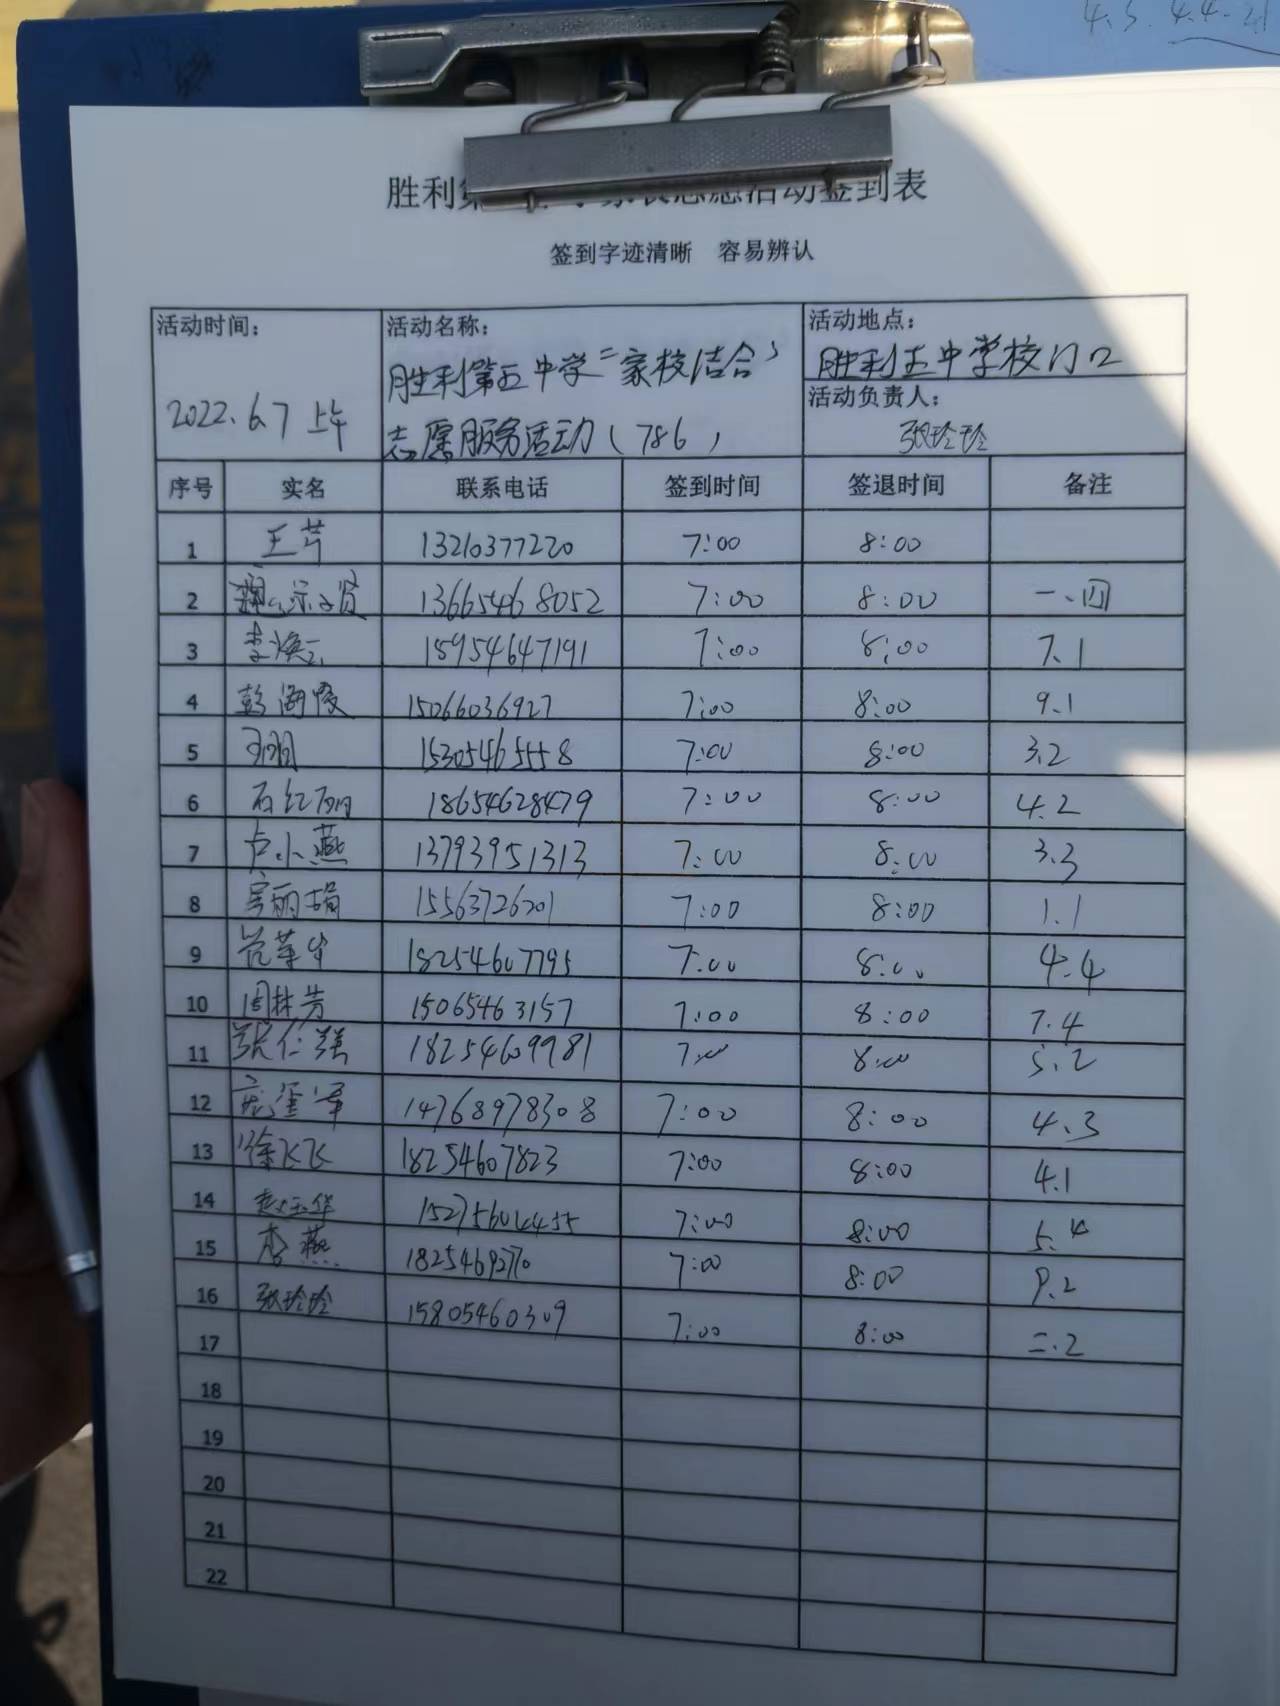 4.3. 4.4.
胜利第 签到表
签到字迹清晰 容易辨认
活动时间: 活动名称: 活动地点:
胜利第五中学"家校结合" 胜利五中学校门口
活动负责人:
2022.6.7 上午 志愿服务活动(786) 张玲玲
序号 实名 联系电话 签到时间 签退时间 备注
1 王芹 13210377220 7:00 8:00
2 13665468052 7:00 8:00 一、四
3 李焕云 15954647191 7:00 8:00 7.1
4 彭海霞 15066036927 7:00 8:00 9.1
5 15305465558 7:00 8:00 3.2
6 石红丽 18654628479 7:00 8:00 4.2
7 卢小燕 13793951313 7:00 8:00 3.3
8 丽娟 15563726201 7:00 8:00 1.1
9 18254607795 7:00 8:00 4.4
10 周林芳 15065463157 7:00 8:00 7.4
11 张仁强 18254609981 7:00 8:00 5.2
12 14768978308 7:00 8:00 4.3
13 徐飞飞 18254607823 7:00 8:00 4.1
14 赵玉华 15275604455 7:00 8:00 5.4
15 李燕 7:00 8:00 9.2
16 张玲玲 15805460309 7:00 8:00 二.2
17
18
19
20
21
22